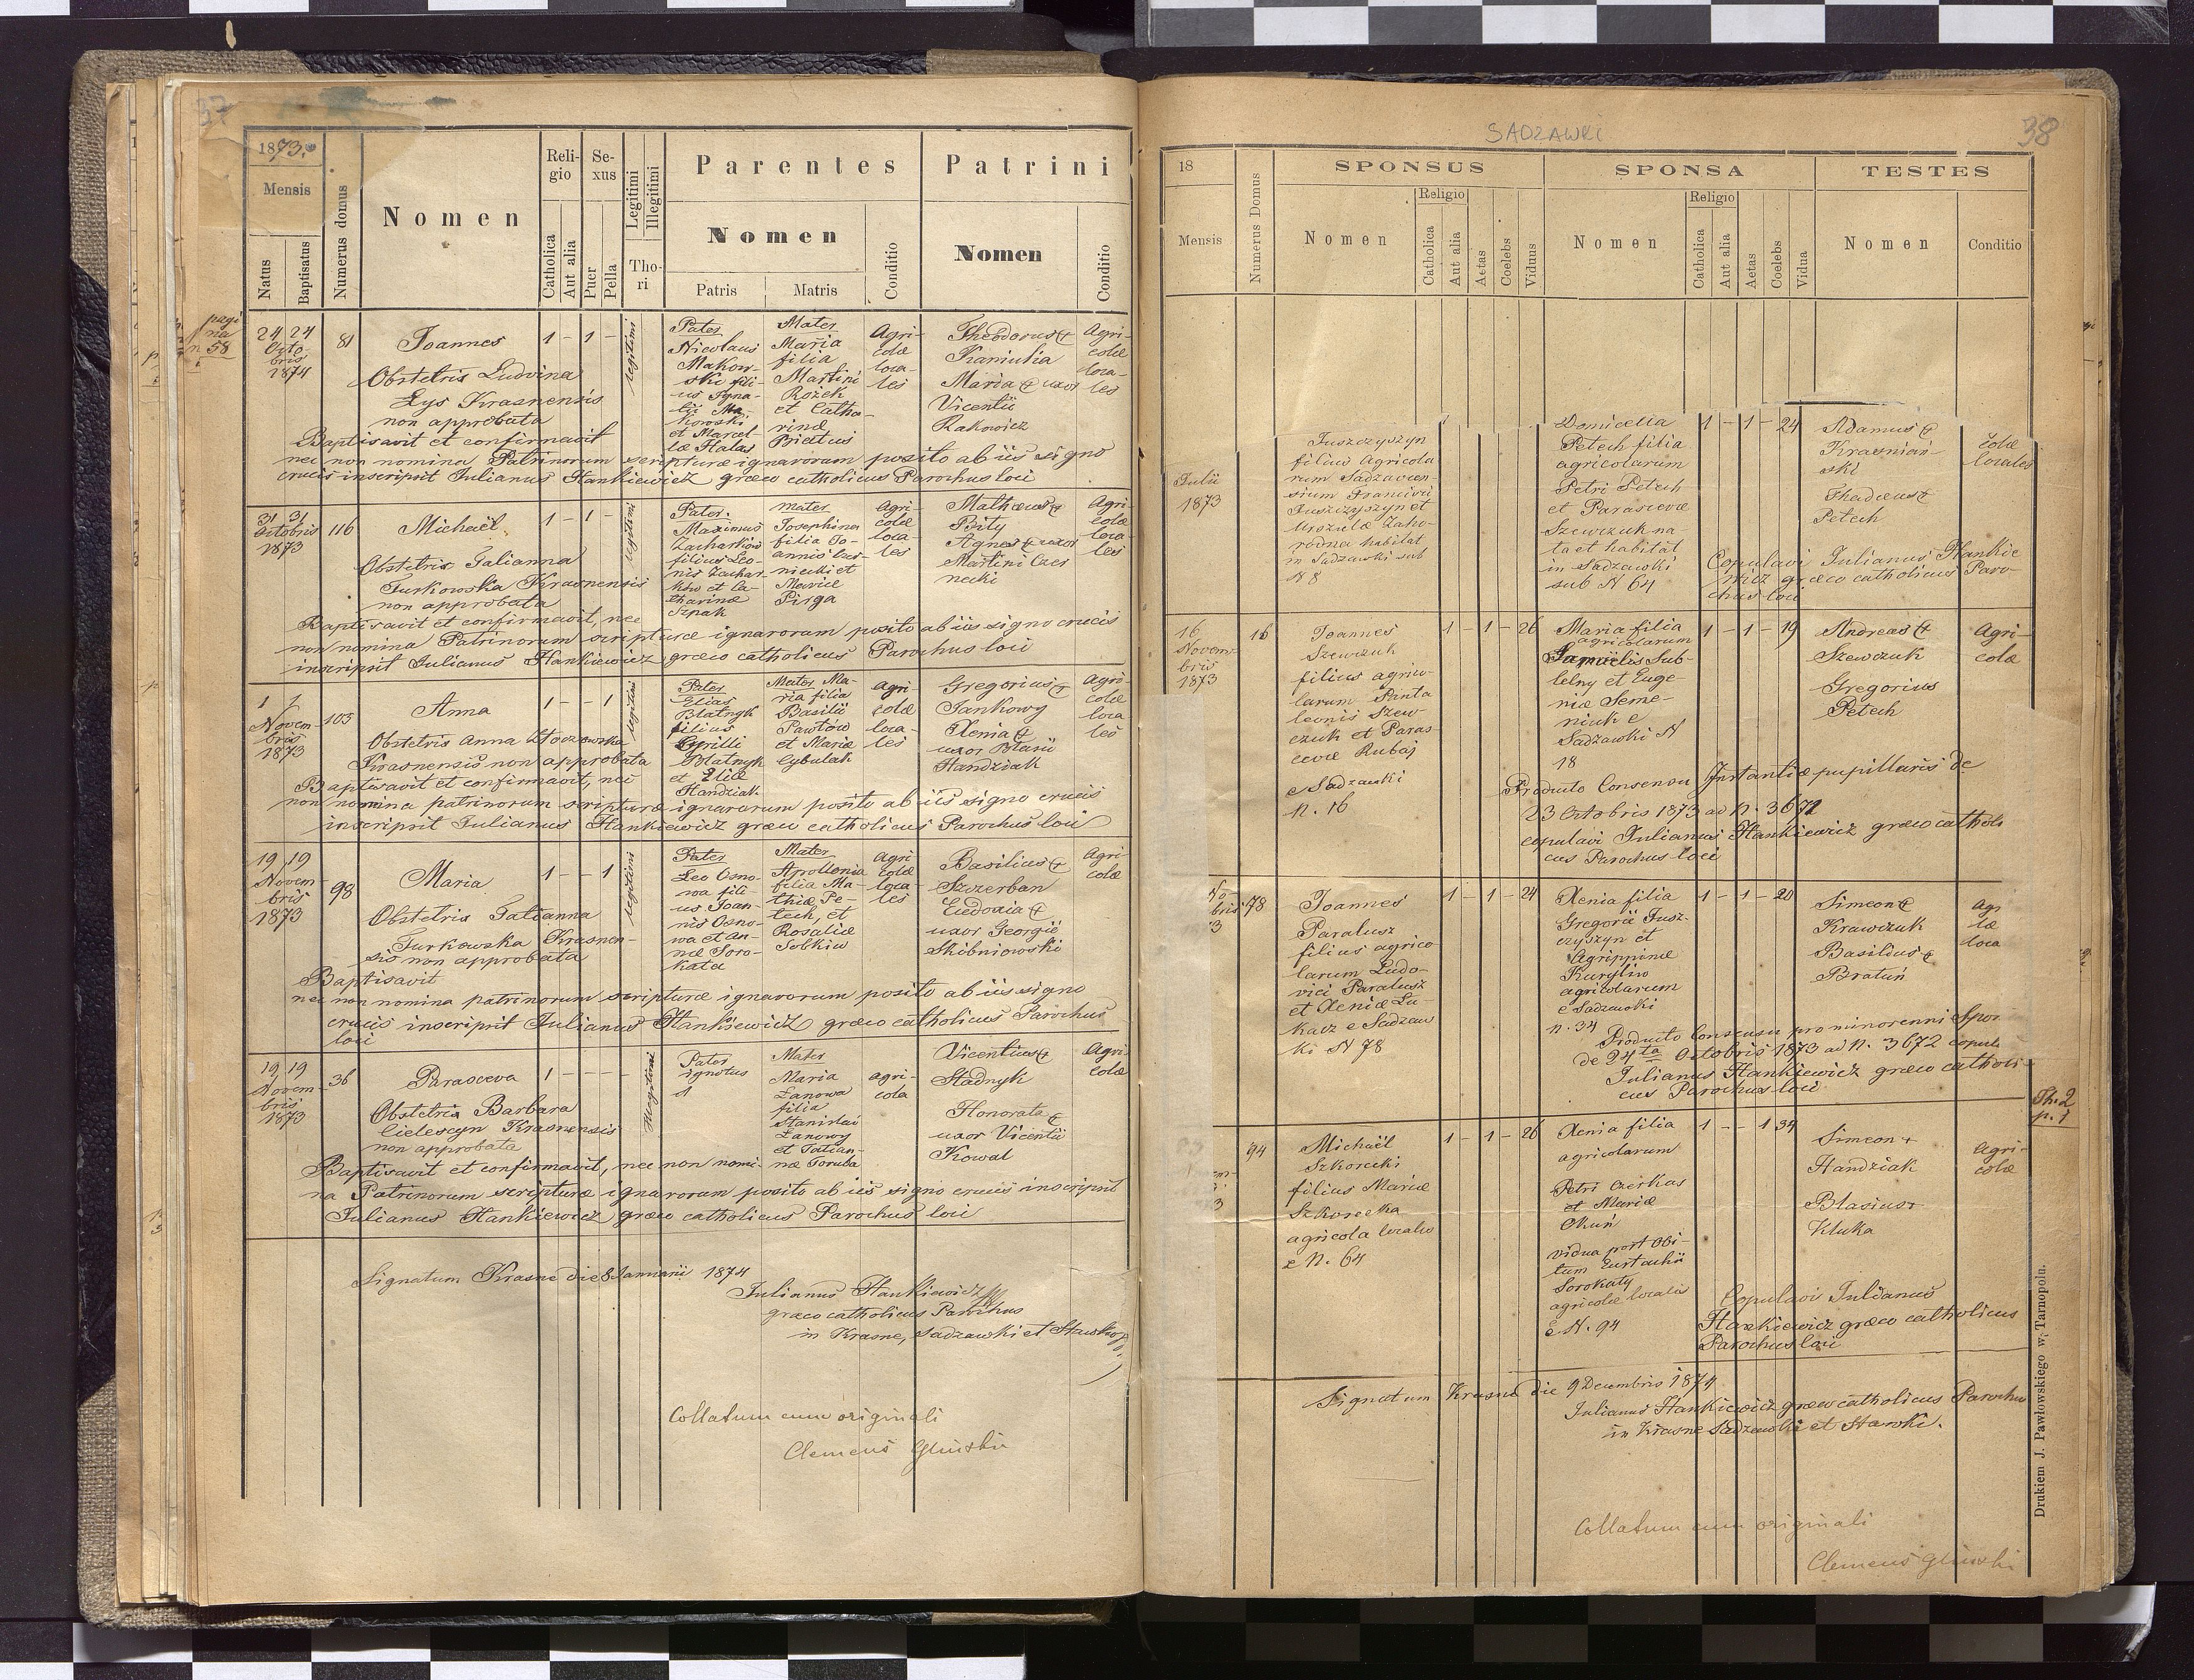 37
1873.
Mensis
Natus
Baptisatus
Numerus domus
Nomen
Religio
Catholica
Aut alia
Sexus
Puer
Pella
Legitimi
Illegitimi
Thori
Parentes
Nomen
Patris
Matris
Conditio
Patrini
Nomen
Conditio
pagi
na
n 58
24 24
Octo
bris
1874
81
Joannes
1 - 1 -
Legitimi
Obstetrix Ludvina
Lys Krasnensis
non approbata
Pater
Nicolaus
Makow-
ski fili-
us Igna-
tii Ma-
kowski
et Marcel-
læ Halas
Mater
Maria
filia
Martini
Rożek
et Catha-
rinæ
Agri-
colæ
loca-
les
Theodorus +
Maria + uxor
Vicentii
Rakowicz
Agri-
colæ
loca-
les
Baptisavit et confirmavit
nec non nomina Patrinorum scripturæ ignarorum posito ab iis signo
crucis inscripsit Julianus Hankiewicz græco catholicus Parochus loci
31 31
Octobris
1873
116
Michaël
1 - 1 -
Legitimi
Obstetrix Talianna
Turkowska Krasnensis
non approbata
Pater
Maximus
Zacharkiów
filius Leo-
nis Zachar-
ków et Ca-
tharinæ
Szpak
Mater
Josephina
filia Jo-
annis Czer-
niecki et
Mariæ
Pirga
Agri-
colæ
loca-
les
Mathæus +
Bity
Agnes + uxor
Martini Czer
necki
Agri-
colæ
loca-
les
Baptisavit et confirmavit, nec
non nomina Patrinorum scripturæ ignarorum posito ab iis signo crucis
inscripsit Julianus Hankiewicz græco catholicus Parochus loci
1 1
Novem-
bris
1873
103
Anna
1 - - 1
Legitimi
Obstetrix Anna
Krasnensis non approbata
Pater
Elias
Blatnyk
filius
Cyrilli
Blatnyk
et Eliæ
Handziak
Mater Ma-
ria filia
Basilii
Pawłów
et Mariæ
Cybulak
Agri-
colæ
loca-
les
Gregorius +
Jankowy
Xenia +
uxor Blasii
Handziak
Agri-
colæ
loca
les
Baptisavit et confirmavit, nec
non nomina patrinorum scripturæ ignarorum posito ab iis signo crucis
inscripsit Julianus Hankiewicz græco catholicus Parochus loci
19 19
Novem-
bris
1873
98
Maria
1 - - 1
Legitimi
Obstetrix Talianna
Turkowska Krasnen-
sis non approbata
Pater
Leo Osno-
wa fili-
us Joan-
nis Osno-
wa et An-
næ Soro-
kata
Mater
Apollonia
filia Ma-
thiæ Pe-
tech, et
Rosaliæ
Sobkiw
Agri
colæ
loca-
les
Basilius +
Szczerban
Eudoxia +
uxor Georgii
Skibniowski
Agri-
colæ
Baptisavit
nec non nomina patrinorum scripturæ ignarorum posito ab iis signo
crucis inscripsit Julianus Hankiewicz græco catholicus Parochus
loci
19 19
Novem-
bris
1873
36
Parasceva
1 - - -
Illegitimi
Obstetrix Barbara
Cielescyn Krasnensis
non approbata
Pater
ignotus
Mater
Maria
Lanowa
filia
Stanislai
Lanowy
et Tatian-
næ Toruba
agri-
cola
Vicentius +
Stadnyk
Honorata +
uxor Vicentii
Kowal
Agri-
colæ
Baptisavit et confirmavit, nec non nomi-
na Patrinorum scripturæ ignarorum posito ab iis signo crucis inscripsit
Julianus Hankiewicz græco catholicus Parochus loci
Signatum Krasne die 8 Januarii 1874
Julianus Hankiewicz
græco catholicus Parochus
in Krasne, Sadzawki et Stawki
Collatum cum originali
Clemens Gliński
SADZAWKI
38
18
Mensis
Numerus Domus
SPONSUS
Nomen
Religio
Catholica
Aut alia
Aetas
Coelebs
Viduus
SPONSA
Nomen
Religio
Catholica
Aut alia
Aetas
Coelebs
Vidua
TESTES
Nomen
Conditio
Julii
1873
Juszczyszyn
filius agricola
rum Sadzaven-
sium Francisci
Juszczyszyn et
Urszulæ Zaho-
rodna habitat
in Sadzawki sub
N 8
Donicella
Petech filia
agricolarum
Petri Petech
et Parascevæ
Szewczuk na
ta et habitat
in Sadzawki
sub N 64
1 - 1 - 24
Adamus +
Krasnian-
ski
Thadæus +
Petech
colæ
locales
Copulavi Julianus Hankie
wicz græco catholicus Paro-
chus loci
16
Novem-
bris
1873
16
Joannes
Szewczuk
filius agrico-
larum Panta
leonis Szew-
czuk et Paras
cevæ Rubaj
e Sadzawki
N. 16
1 - 1 - 26
Maria filia
agricolarum
Samuelis Sub-
telny et Euge-
niæ Seme-
niuk e
Sadzawki N
18
1 - 1 - 19
Andreas +
Szewczuk
Gregorius
Petech
Agri-
colæ
Producto Consensu Instantiæ pupillaris de
23 Octobris 1873 ad N. 3671
copulavi Julianus Hankiewicz græco catholi
cus Parochus loci
No
bris
3
78
Joannes
Paralusz
filius agrico
larum Ludo-
vici Paralusz
et Xeniæ Lu-
kacz e Sadzaw
ki N 78
1 - 1 - 24
Xenia filia
Gregorii Jusz-
czyszyn et
Agrippinæ
Kuryliw
agricolarum
e Sadzawki
N. 34
1 - 1 - 20
Simeon +
Krawczuk
Basilius +
Bratuń
Agr
læ
loca
Producto Consensu pro minorenni Spon
de 24ta Octobris 1873 ad N. 3672 copula
Julianus Hankiewicz græco catholi-
cus Parochus loci
Th. 2
p. 1
3
94
Michaël
Szkorecki
filius Mariæ
Szkorecka
agricola localis
e N. 64
1 - 1 - 26
Xenia filia
agricolarum
Petri Czerkas
et Mariæ
Okuń
vidua post obi-
tum Eustachii
Sorokaty
agricolæ localis
e N. 94
1 - - 1 34
Simeon +
Handziak
Blasius +
Kluka
Agri-
colæ
Copulavi Julianus
Hankiewicz græco catholicus
Parochus loci
Signatum Krasne die 9 Decembris 1874
Julianus Hankiewicz græco catholicus Parochus
in Krasne Sadzawki et Stawki.
Collatum cum originali
Clemens Gliński
Drukiem J. Pawłowskiego w Tarnopolu.